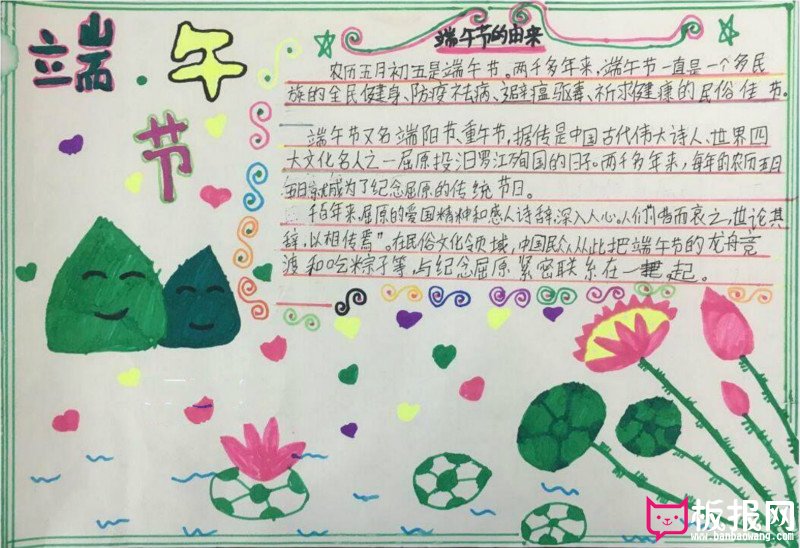 端午
节
端午节的由来
农历五月初五是端午节。两千多年来，端午节一直是一个多民
族的全民健身、防疫祛病、避瘟驱毒、祈求健康的民俗佳节。
端午节又名端阳节、重午节，据传是中国古代伟大诗人、世界四
大文化名人之一屈原投汨罗江殉国的日子。两千多年来，每年的农历五月
初五就成为了纪念屈原的传统节日。
千百年来，屈原的爱国精神和感人诗辞，深入人心。人们"惜而哀之，世论其
辞，以相传焉"。在民俗文化领域，中国民众从此把端午节的龙舟竞
渡和吃粽子等，与纪念屈原紧密联系在一起。
板报网
www.banbaowang.com